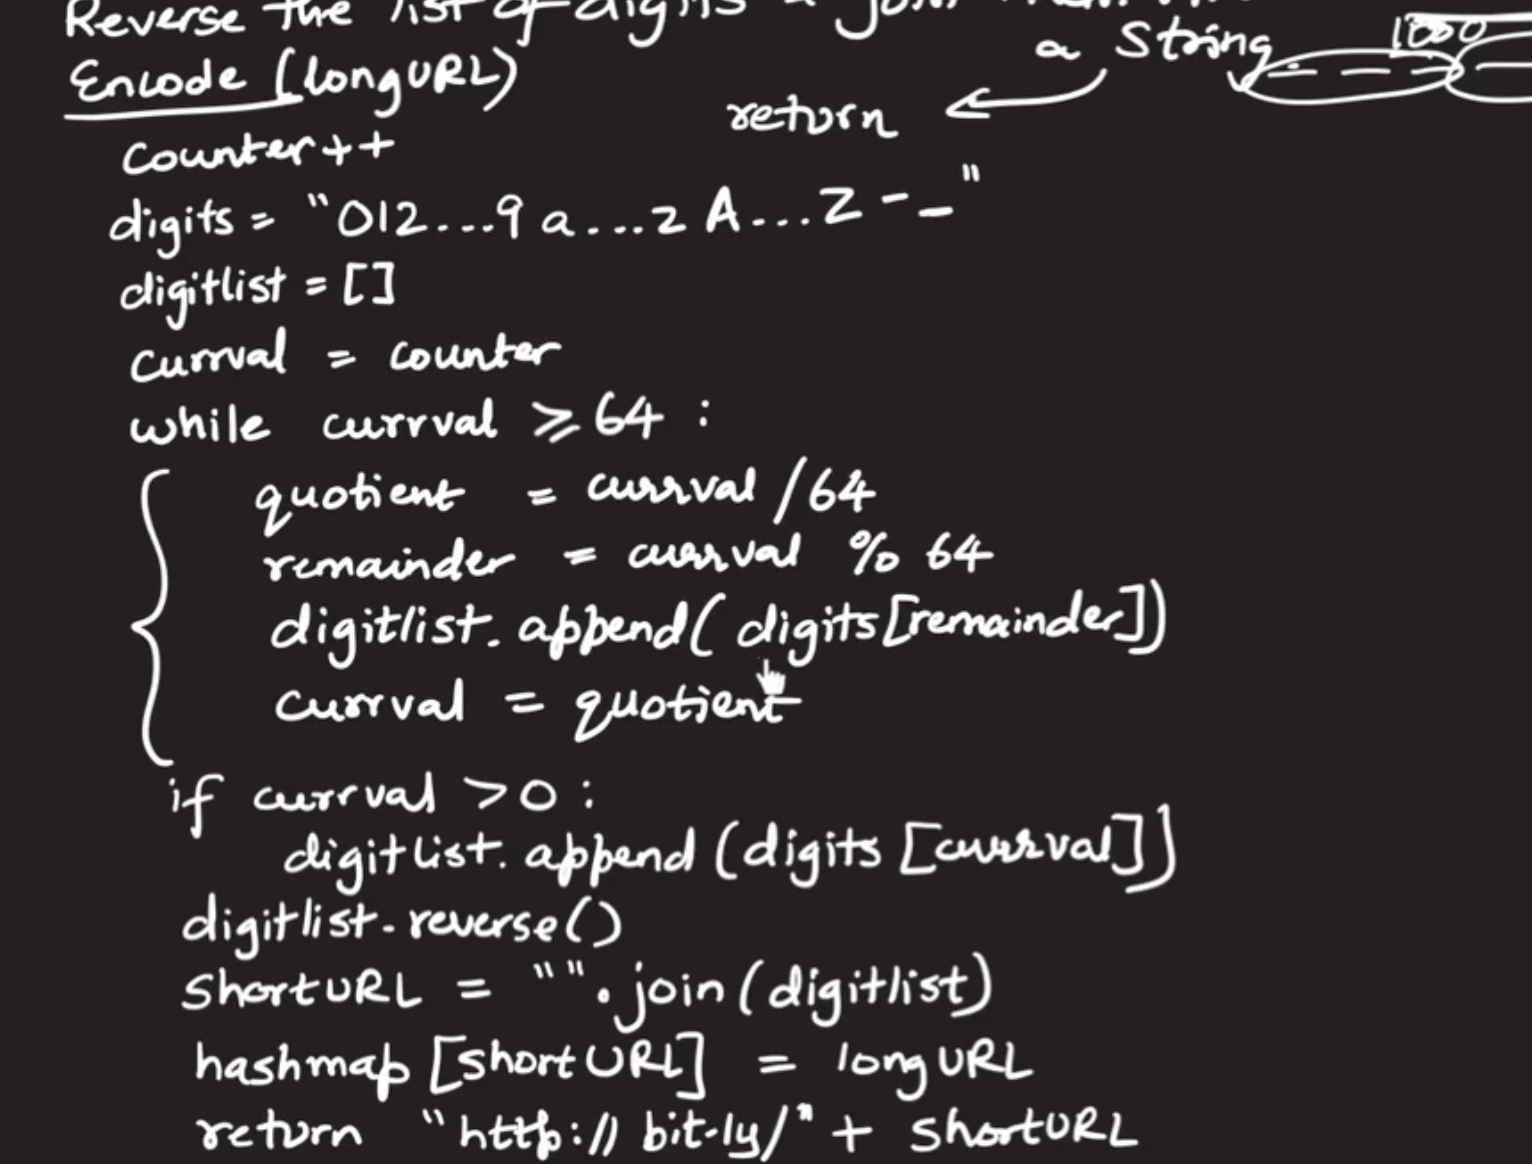 Reverse the list of digits
a String
1000
Encode (longURL)
return
counter++
digits = "012...9 a...z A...Z -_"
digitlist = []
currval = counter
while currval ≥ 64 :
quotient = currval / 64
remainder = currval % 64
digitlist.append( digits[remainder])
currval = quotient
if currval > 0 :
digitlist.append (digits [currval])
digitlist.reverse()
shortURL = "".join(digitlist)
hashmap [shortURL] = longURL
return "http:// bit.ly/" + shortURL